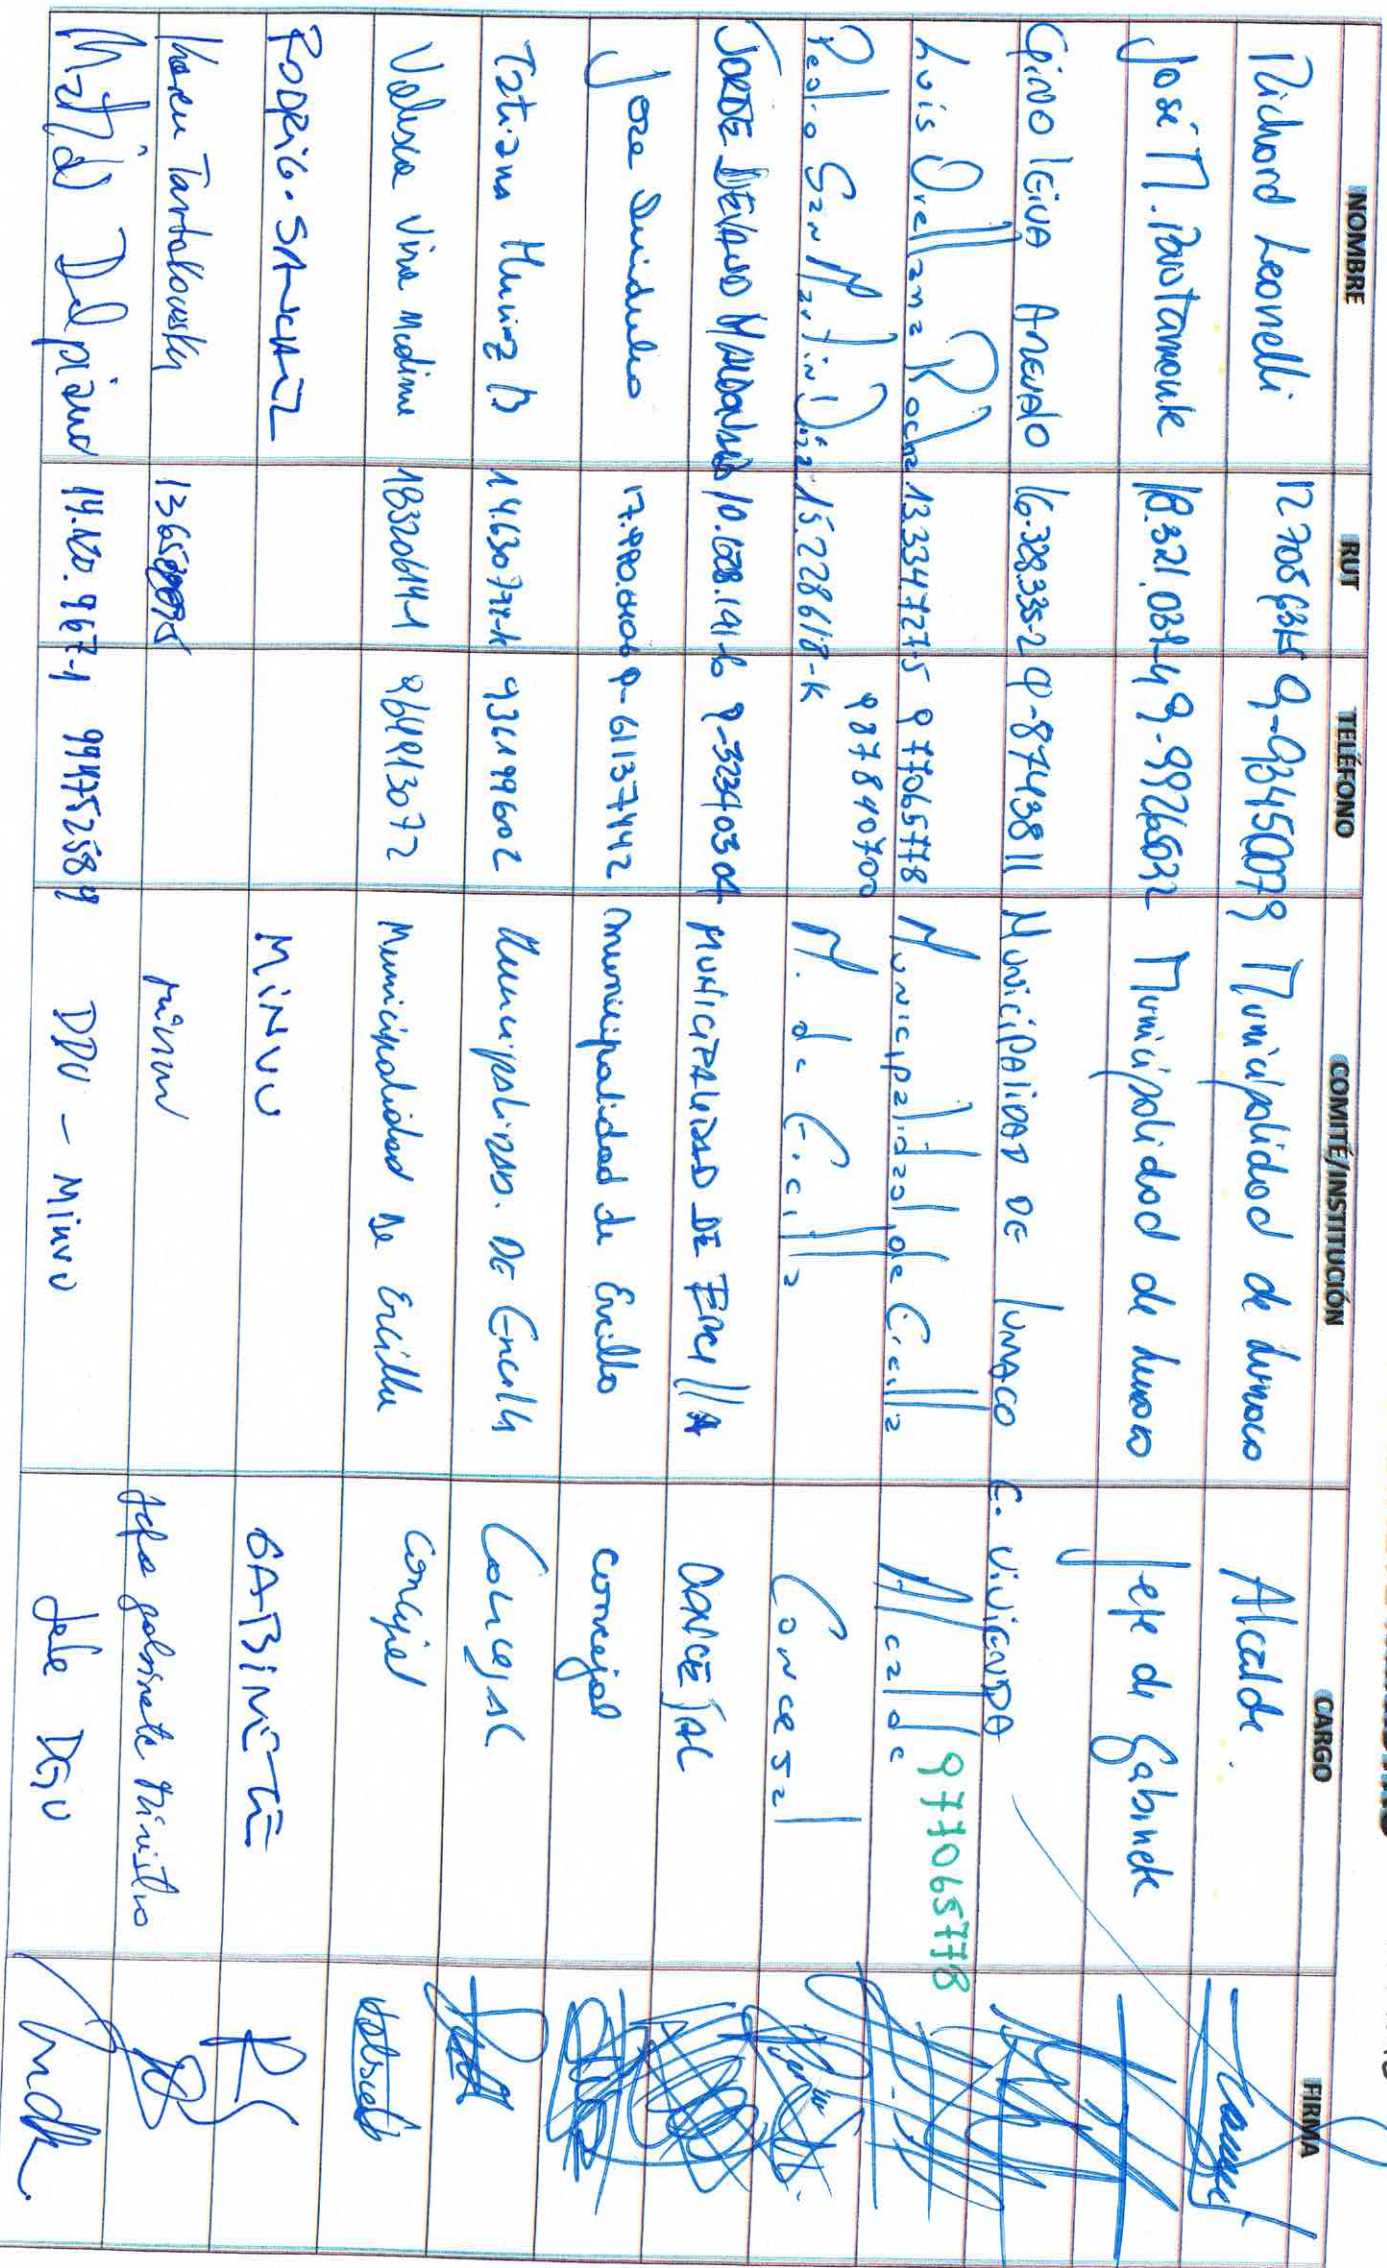 NOMBRE RUT TELÉFONO COMITÉ/INSTITUCIÓN CARGO FIRMA
Richard Leonelli 9-93450079 Municipalidad de Lumaco Alcalde.
José M. 18.321.037-4 9-99265032 Municipalidad de Lumaco Jefe de Gabinete
Gino Leiva Arevalo 16.328.335-2 9-8743811 Municipalidad de Lumaco E. Vivienda
Luis Orellana Rocha 13.334727-5 977065778 Municipalidad de Ercilla Alcalde 977065778
Pedro San Martin Díaz 15.228618-K 987840700 M. de Ercilla Concejal
10.628.141-6 9-32340304 MUNICIPALIDAD DE ERCILLA CONCEJAL
Jose 9-61137442 municipalidad de Ercilla concejal
Tatiana B 936199602 Municipalidad. De Ercilla Concejal
Valeria 18320614-1 964913072 Municipalidad De Ercilla Concejal
RODRIGO SANCHEZ MINVU GABINETE RS
Karen Tartakowsky minvu Jefa gabinete Ministro
Delpiano 14.120.967-1 994752589 DDU - Minvu Jefe